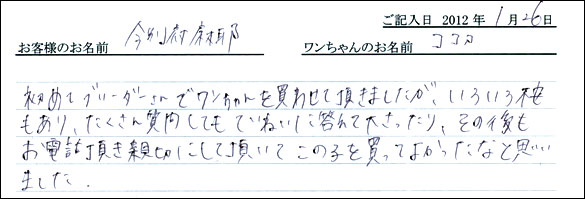 ご記入日 2012年 1月26日
お客様のお名前 今別府 ワンちゃんのお名前 ココア
初めてブリーダーさんでワンちゃんを買わせて頂きましたが、いろいろ不安
もあり、たくさん質問してもていねいに答えて下さったり、その後も
お電話頂き親切にして頂いてこの子を買ってよかったなと思い
ました.